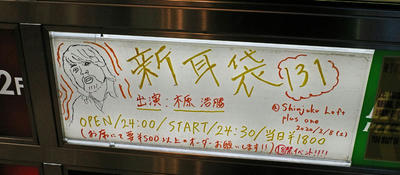 2F
新耳袋 131
出演:木原浩勝
@Shinjuku Loft
plus one
2020/2/8(土)
OPEN/24:00/START/24:30/当日¥1800
(お席にて¥500以上のオーダーお願いします!!)